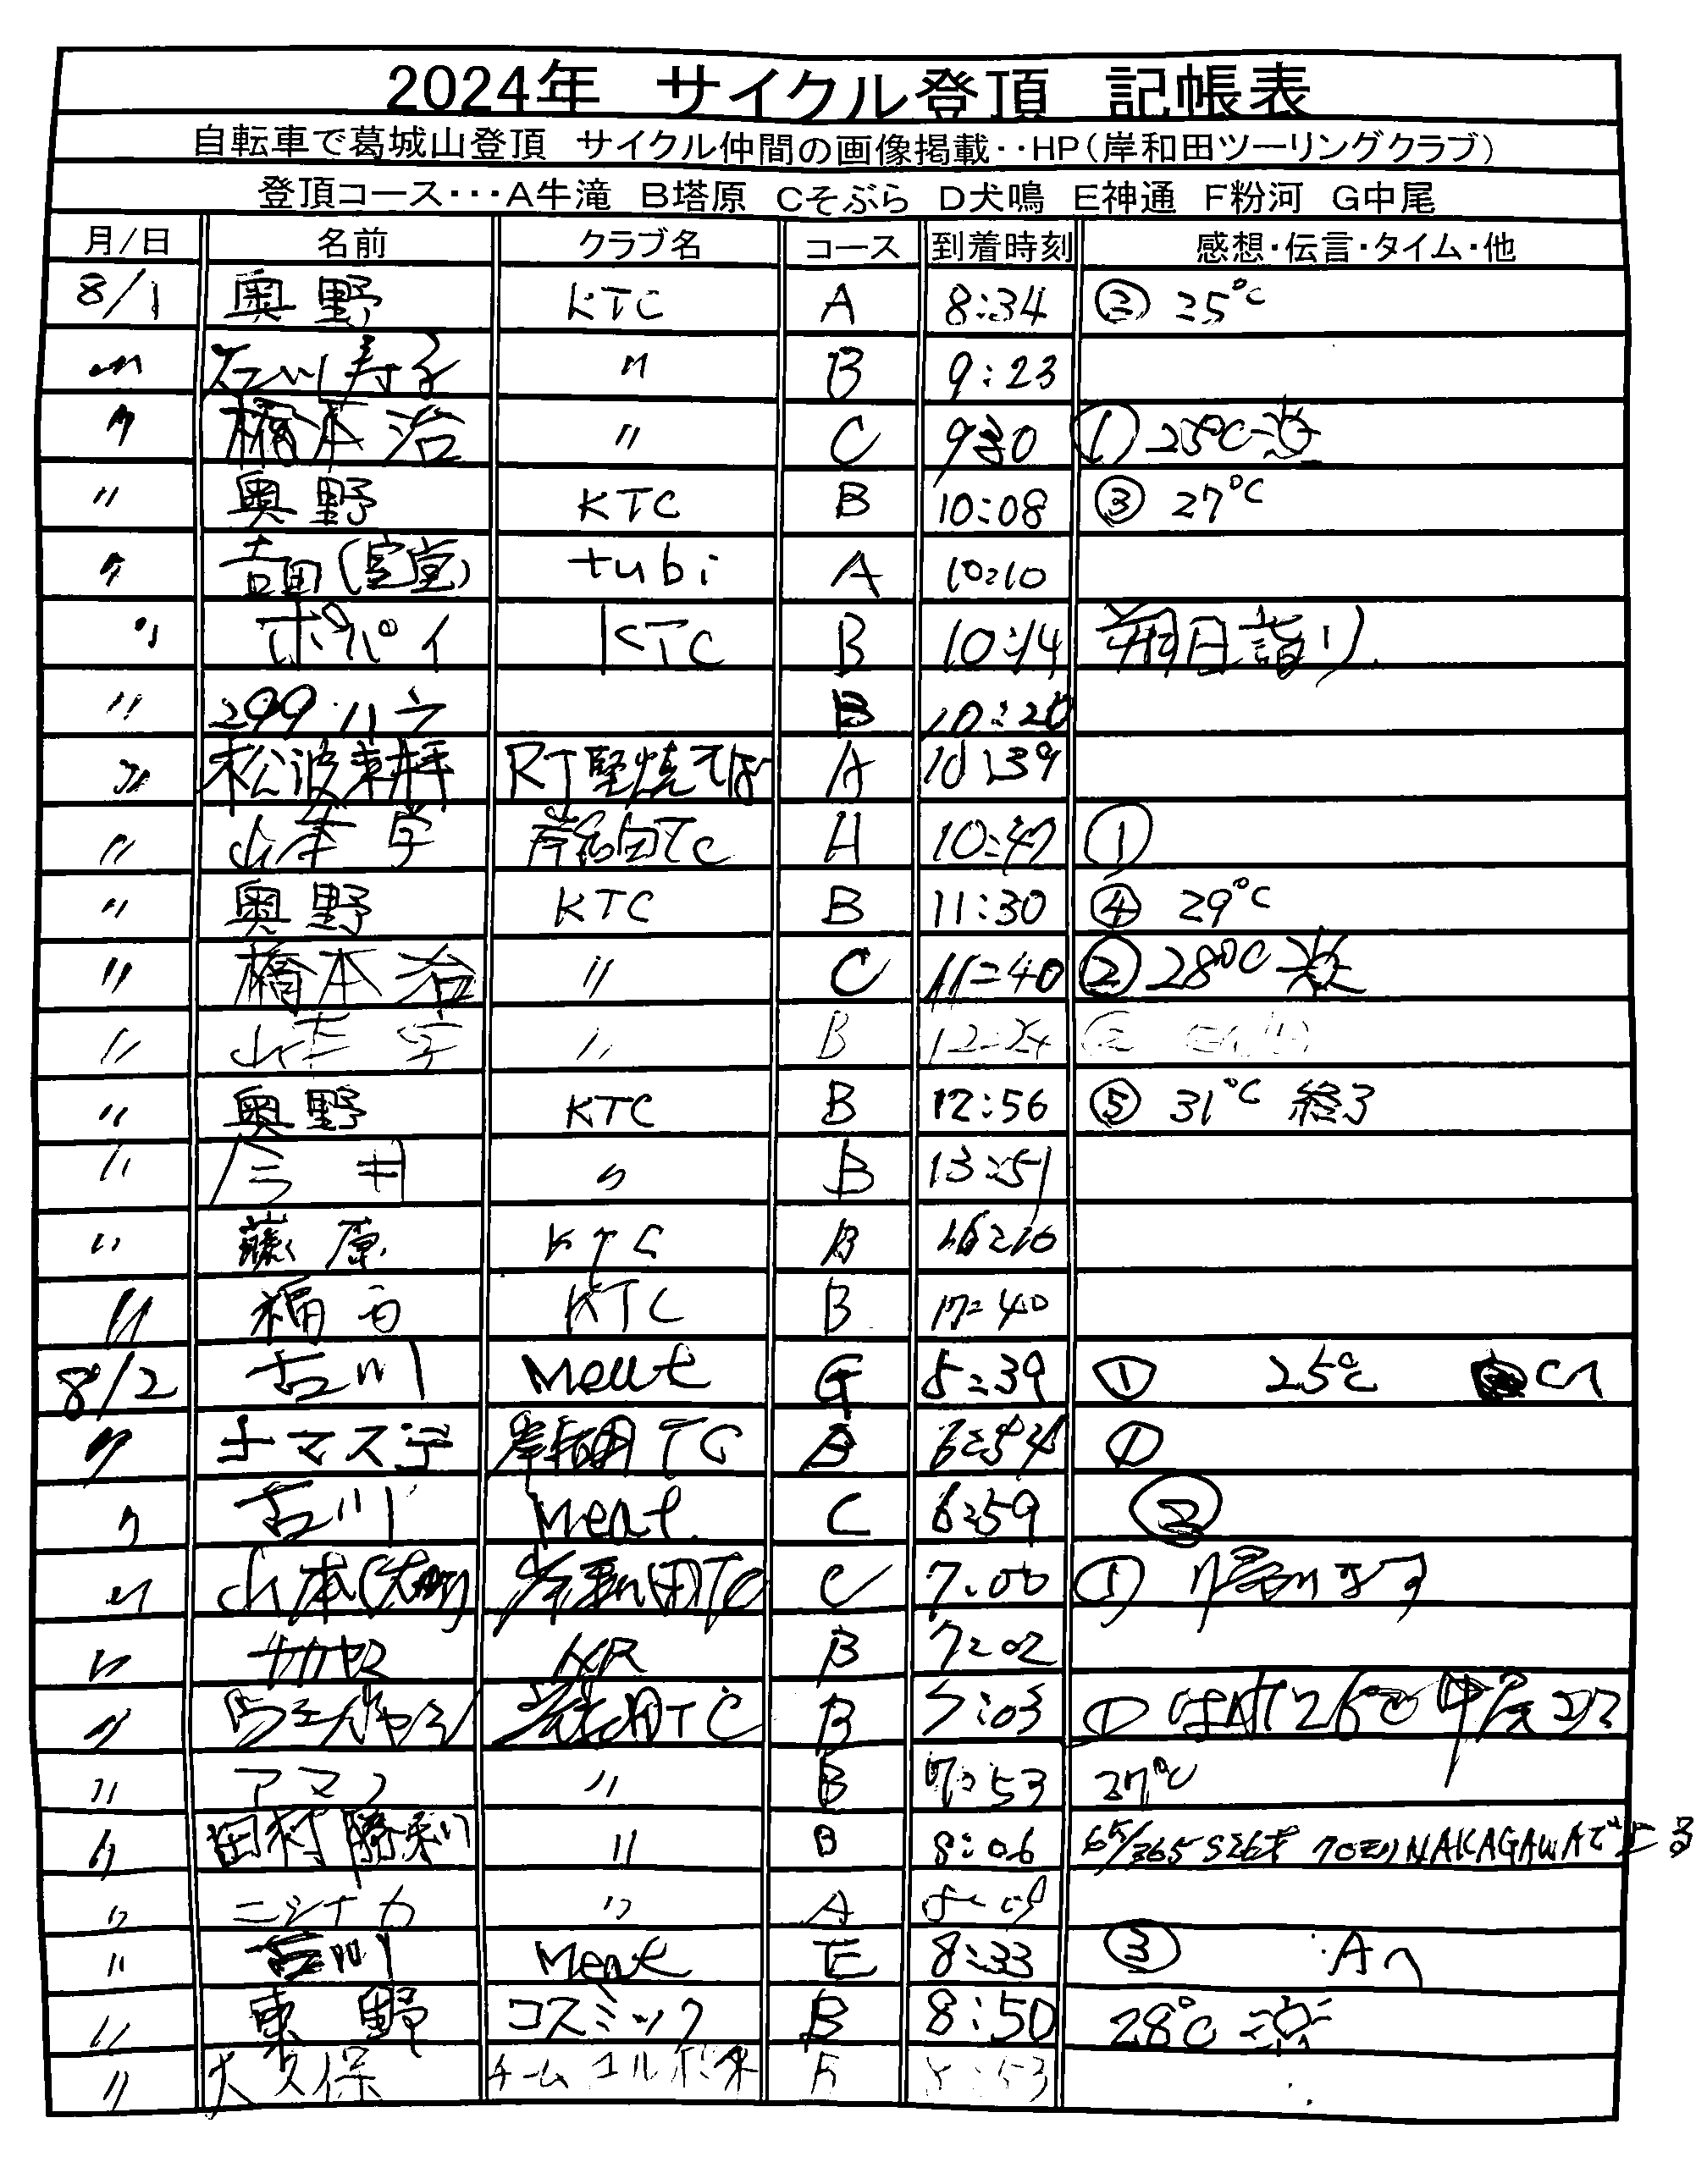 2024年 サイクル登頂 記帳表
自転車で葛城山登頂 サイクル仲間の画像掲載‥HP(岸和田ツーリングクラブ)
登頂コース･･･A牛滝 B塔原 Cそぶら D犬鳴 E神通 F粉河 G中尾
月/日 名前 クラブ名 コース 到着時刻 感想・伝言・タイム・他
8/1 奥野 KTC A 8:34 ② 25℃
〃 石川寿子 〃 B 9:23
〃 橋本治 〃 C 9:30 ① 25℃
〃 奥野 KTC B 10:08 ③ 27℃
〃 吉田(室堂) tubi A 10:10
〃 ポパイ KTC B 10:14 朔日詣り
〃 299 B 10:20
〃 松波 RT堅焼そば A 10:39
〃 山本 学 岸和田TC 10:47 ①
〃 奥野 KTC B 11:30 ④ 29℃
〃 橋本治 〃 C 11:40 ② 28℃
〃 山本 学 〃 B 12:24 ②
〃 奥野 KTC B 12:56 ⑤ 31℃ 終了
〃 今井 〃 B 13:51
〃 藤原 KTC B 16:10
〃 KTC B 17:40
8/2 古川 Ment G 5:39 ① 25℃ Cへ
〃 岸和田TC 6:54 ①
〃 古川 Ment C 6:59 ②
〃 山本 岸和田TC C 7:00 ①
〃 B 7:02
〃 岸和田TC B 7:03 ①
〃 アマノ 〃 B 7:53 27℃
〃 田村勝利 〃 B 8:06 65/365 NAKAGAWAで上る
〃 ニシナカ 〃 A
〃 古川 Ment E 8:33 ③ Aへ
〃 東野 コスミック B 8:50 28℃ 涼
〃 大久保 チーム 8:53